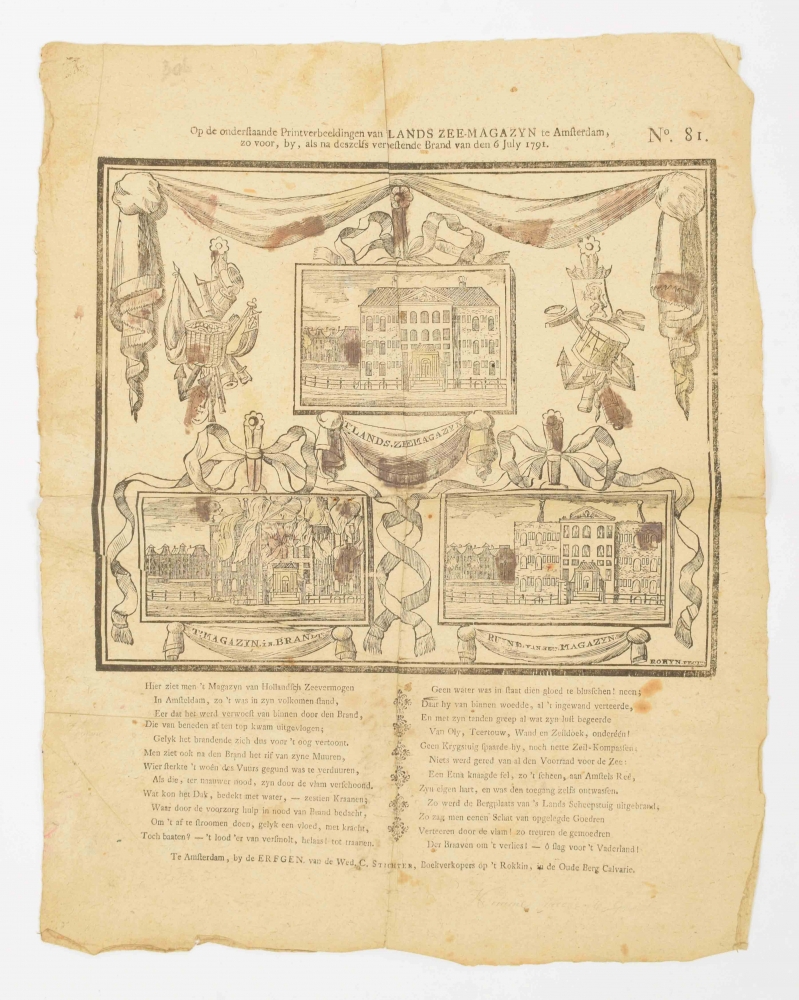 306
Op de ouderstaande Printverbeeldingen van LANDS ZEE-MAGAZYN te Amsterdam,
zo voor, by, als na deszelfs verwoestende Brand van den 6 July 1791.
No. 81.
'T LANDS ZEEMAGAZYN
'T MAGAZYN in BRANDT
RUYNE VAN HET MAGAZYN
ROBYN FECIT
Hier ziet men 't Magazyn van Hollandsch Zeevermogen
In Amsteldam, zo 't was in zyn volkomen stand,
Eer dat het werd verwoest van binnen door den Brand,
Die van beneden af ten top kwam uitgevlogen;
Gelyk het brandende zich dus voor 't oog vertoont.
Men ziet ook na den Brand het rif van zyne Muuren,
Wier sterkte 't woên des Vuurs gegund was te verduuren,
Als die, ter nauwer nood, zyn door de vlam verschoond.
Wat kon het Dak, bedekt met water, — zestien Kraanen;
Waar door de voorzorg hulp in nood van Brand bedacht,
Om 't af te stroomen doen, gelyk een vloed, met kracht,
Toch baaten? — 't lood 'er van versmolt, helaas! tot traanen.
Geen water was in staat dien gloed te blusschen! neen;
Daar hy van binnen woedde, al 't ingewand verteerde,
En met zyn tanden greep al wat zyn lust begeerde
Van Oly, Teertouw, Wand en Zeildoek, onderéén!
Geen Krygstuig spaarde hy, noch nette Zeil-Kompassen:
Niets werd gered van al den Voorraad voor de Zee:
Een Etna knaagde fel, zo 't scheen, aan Amstels Reê,
Zyn eigen hart, en was den toegang zelfs ontwassen.
Zo werd de Bergplaats van 's Lands Scheepstuig uitgebrand,
Zo zag men eenen Schat van opgelegde Goedren
Verteeren door de vlam! zo treuren de gemoedren
Der Braaven om 't verlies! — ô slag voor 't Vaderland!
Te Amsterdam, by de ERFGEN. van de Wed. C. STICHTER, Boekverkopers op 't Rokkin, in de Oude Berg Calvarie.